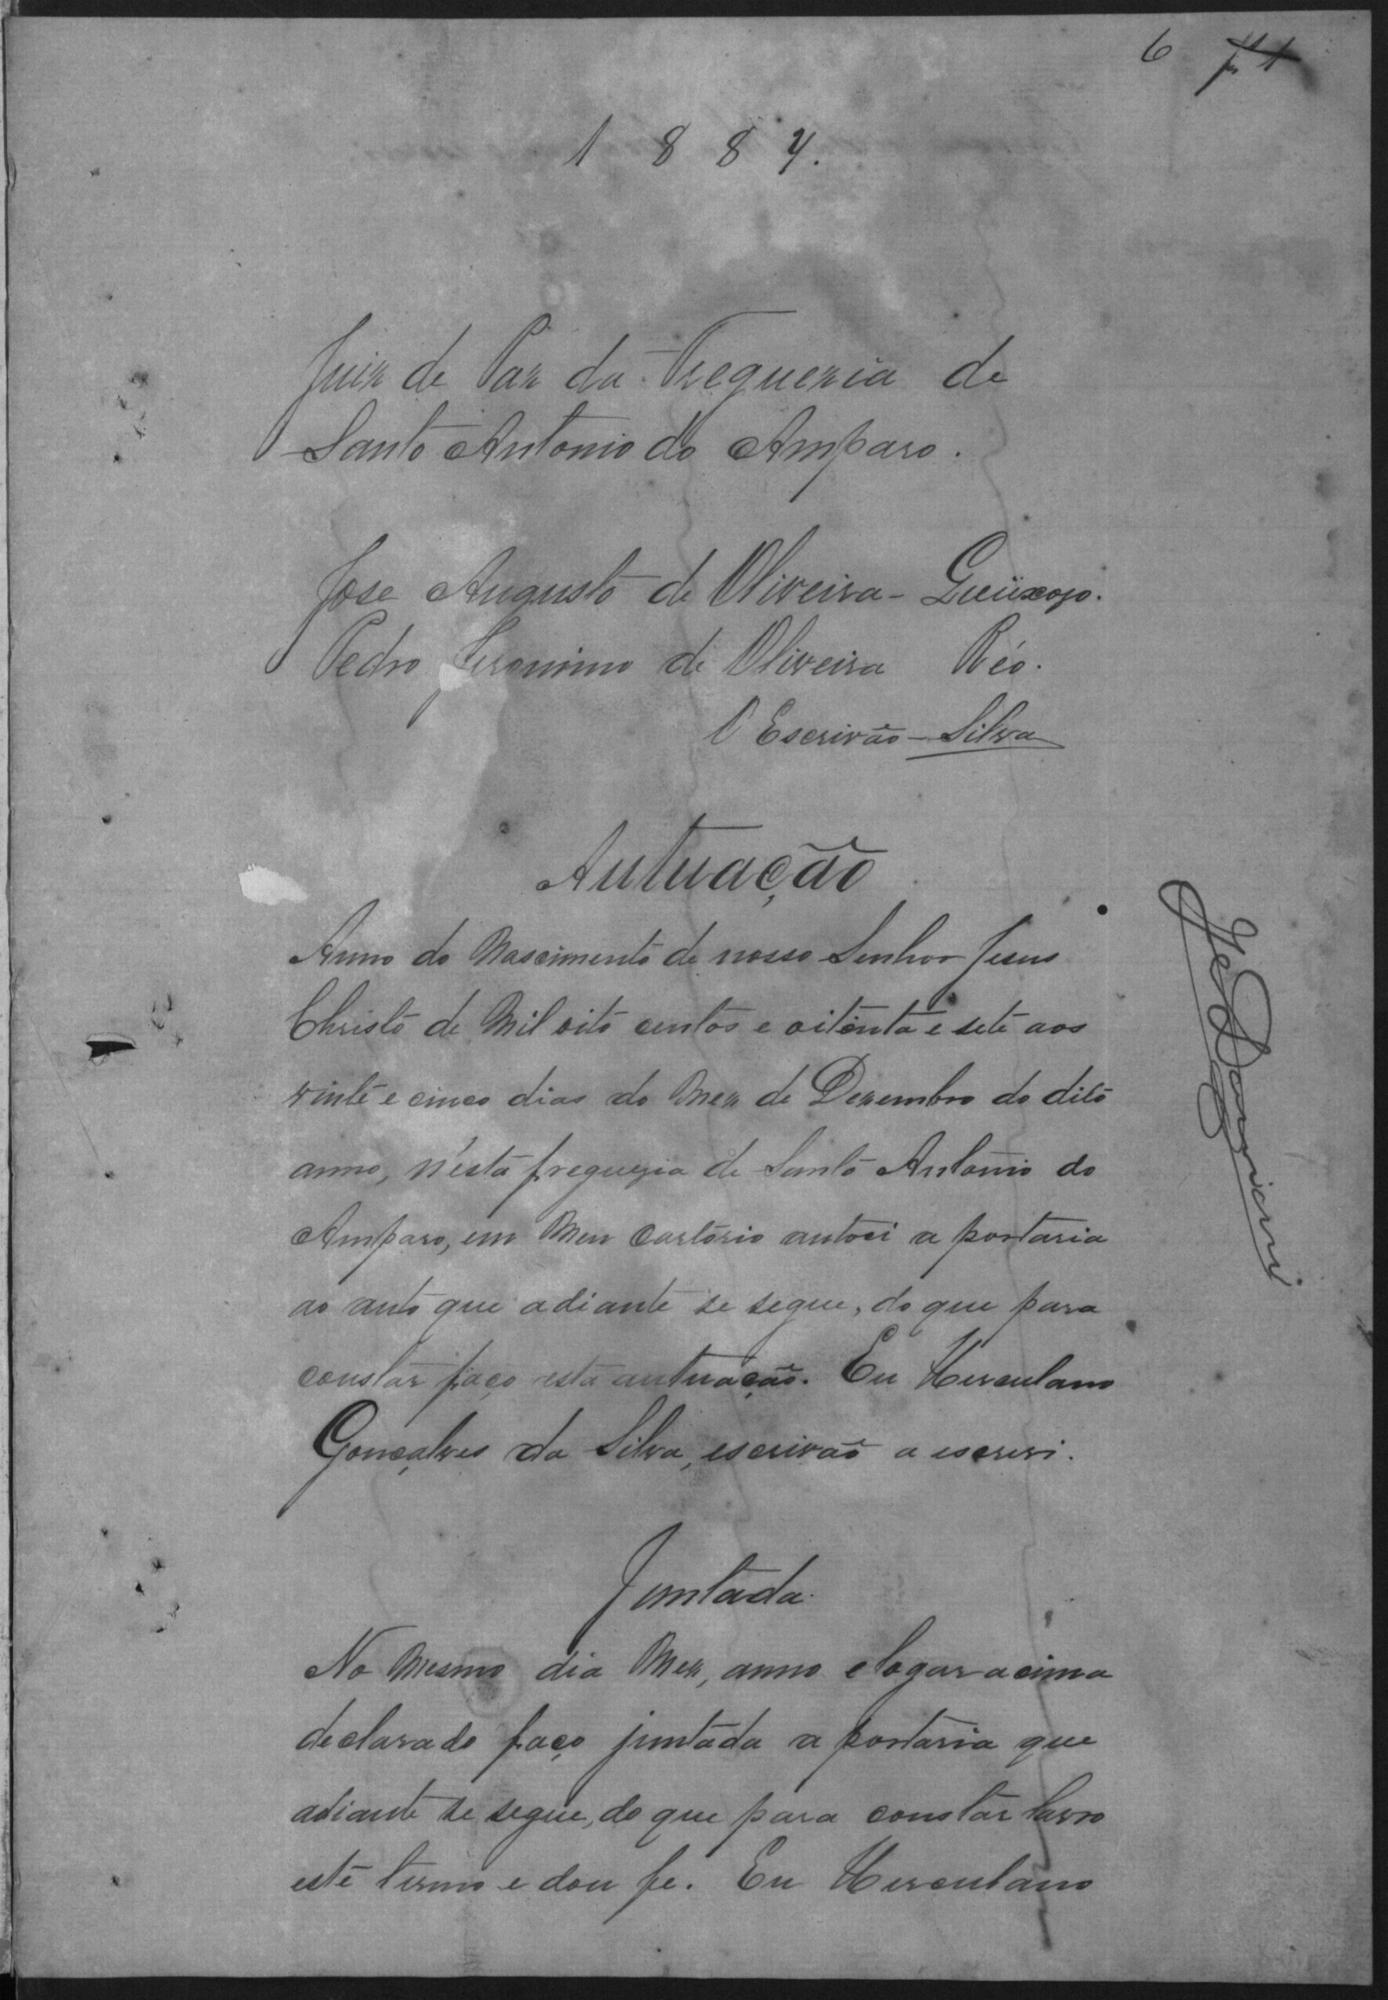 6
1887.
Juiz de Paz da Freguezia de
Santo Antonio do Amparo.
Jose Augusto de Oliveira - Queixozo.
Pedro Jeronimo de Oliveira Réo.
O Escrivão - Silva
Autuação
Anno do Nascimento de nosso Senhor Jesus
Christo de Mil oito centos e oitenta e sete aos
vinte e cinco dias do Mez de Dezembro do dito
anno, n'esta freguezia de Santo Antonio do
Amparo, em Meu Cartorio autoei a portaria
ao auto que adiante se segue, do que para
constar faço esta autuação. Eu Herculano
Gonçalves da Silva, escrivão a escrevi.
Juntada.
No Mesmo dia Mez, anno e logar acima
declarado faço juntada a portaria que
adiante se segue, do que para constar lavro
este termo e dou fe. Eu Herculano